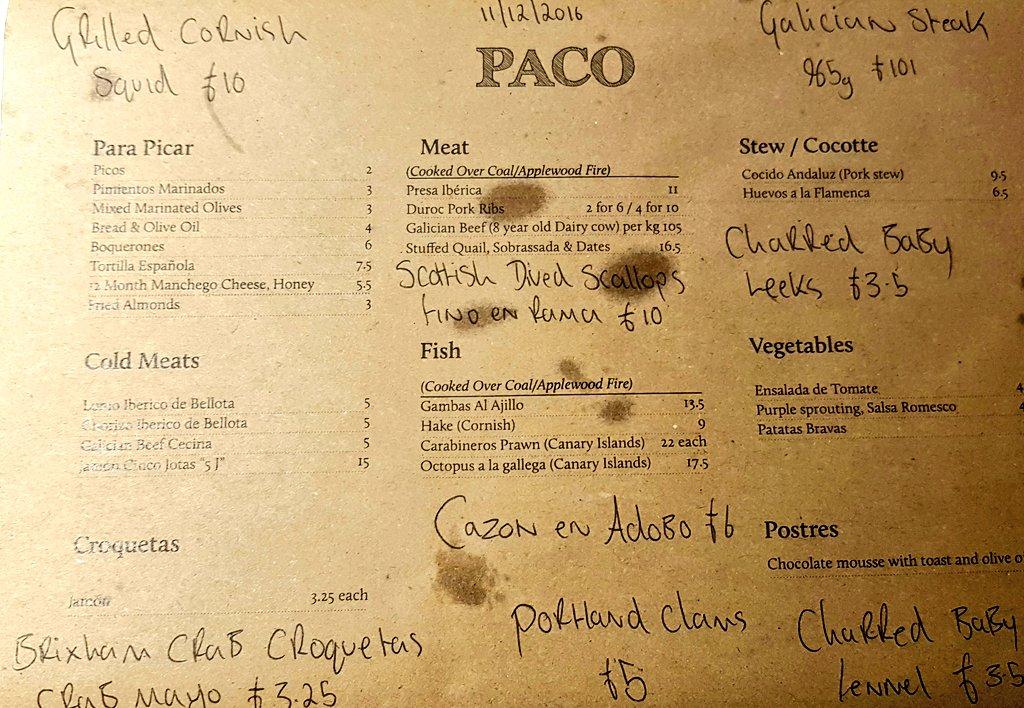 Grilled Cornish
Squid £10
11/12/2016
PACO
Galician Steak
965g £101
Para Picar
Picos 2
Pimientos Marinados 3
Mixed Marinated Olives 3
Bread & Olive Oil 4
Boquerones 6
Tortilla Española 7.5
12 Month Manchego Cheese, Honey 5.5
Fried Almonds 3
Cold Meats
Lomo Iberico de Bellota 5
Chorizo Iberico de Bellota 5
Galician Beef Cecina 5
Jamón Cinco Jotas "5 J" 15
Croquetas
Jamón 3.25 each
Brixham Crab Croquetas
Crab Mayo £3.25
Meat
(Cooked Over Coal/Applewood Fire)
Presa Ibérica 11
Duroc Pork Ribs 2 for 6 / 4 for 10
Galician Beef (8 year old Dairy cow) per kg 105
Stuffed Quail, Sobrassada & Dates 16.5
Scottish Dived Scallops
Fino en Rama £10
Fish
(Cooked Over Coal/Applewood Fire)
Gambas Al Ajillo 13.5
Hake (Cornish) 9
Carabineros Prawn (Canary Islands) 22 each
Octopus a la gallega (Canary Islands) 17.5
Cazon en Adobo £6
Portland Clams
£5
Stew / Cocotte
Cocido Andaluz (Pork stew) 9.5
Huevos a la Flamenca 6.5
Charred Baby
Leeks £3.5
Vegetables
Ensalada de Tomate 4
Purple sprouting, Salsa Romesco 4
Patatas Bravas
Postres
Chocolate mousse with toast and olive o
Charred Baby
Fennel £3.5